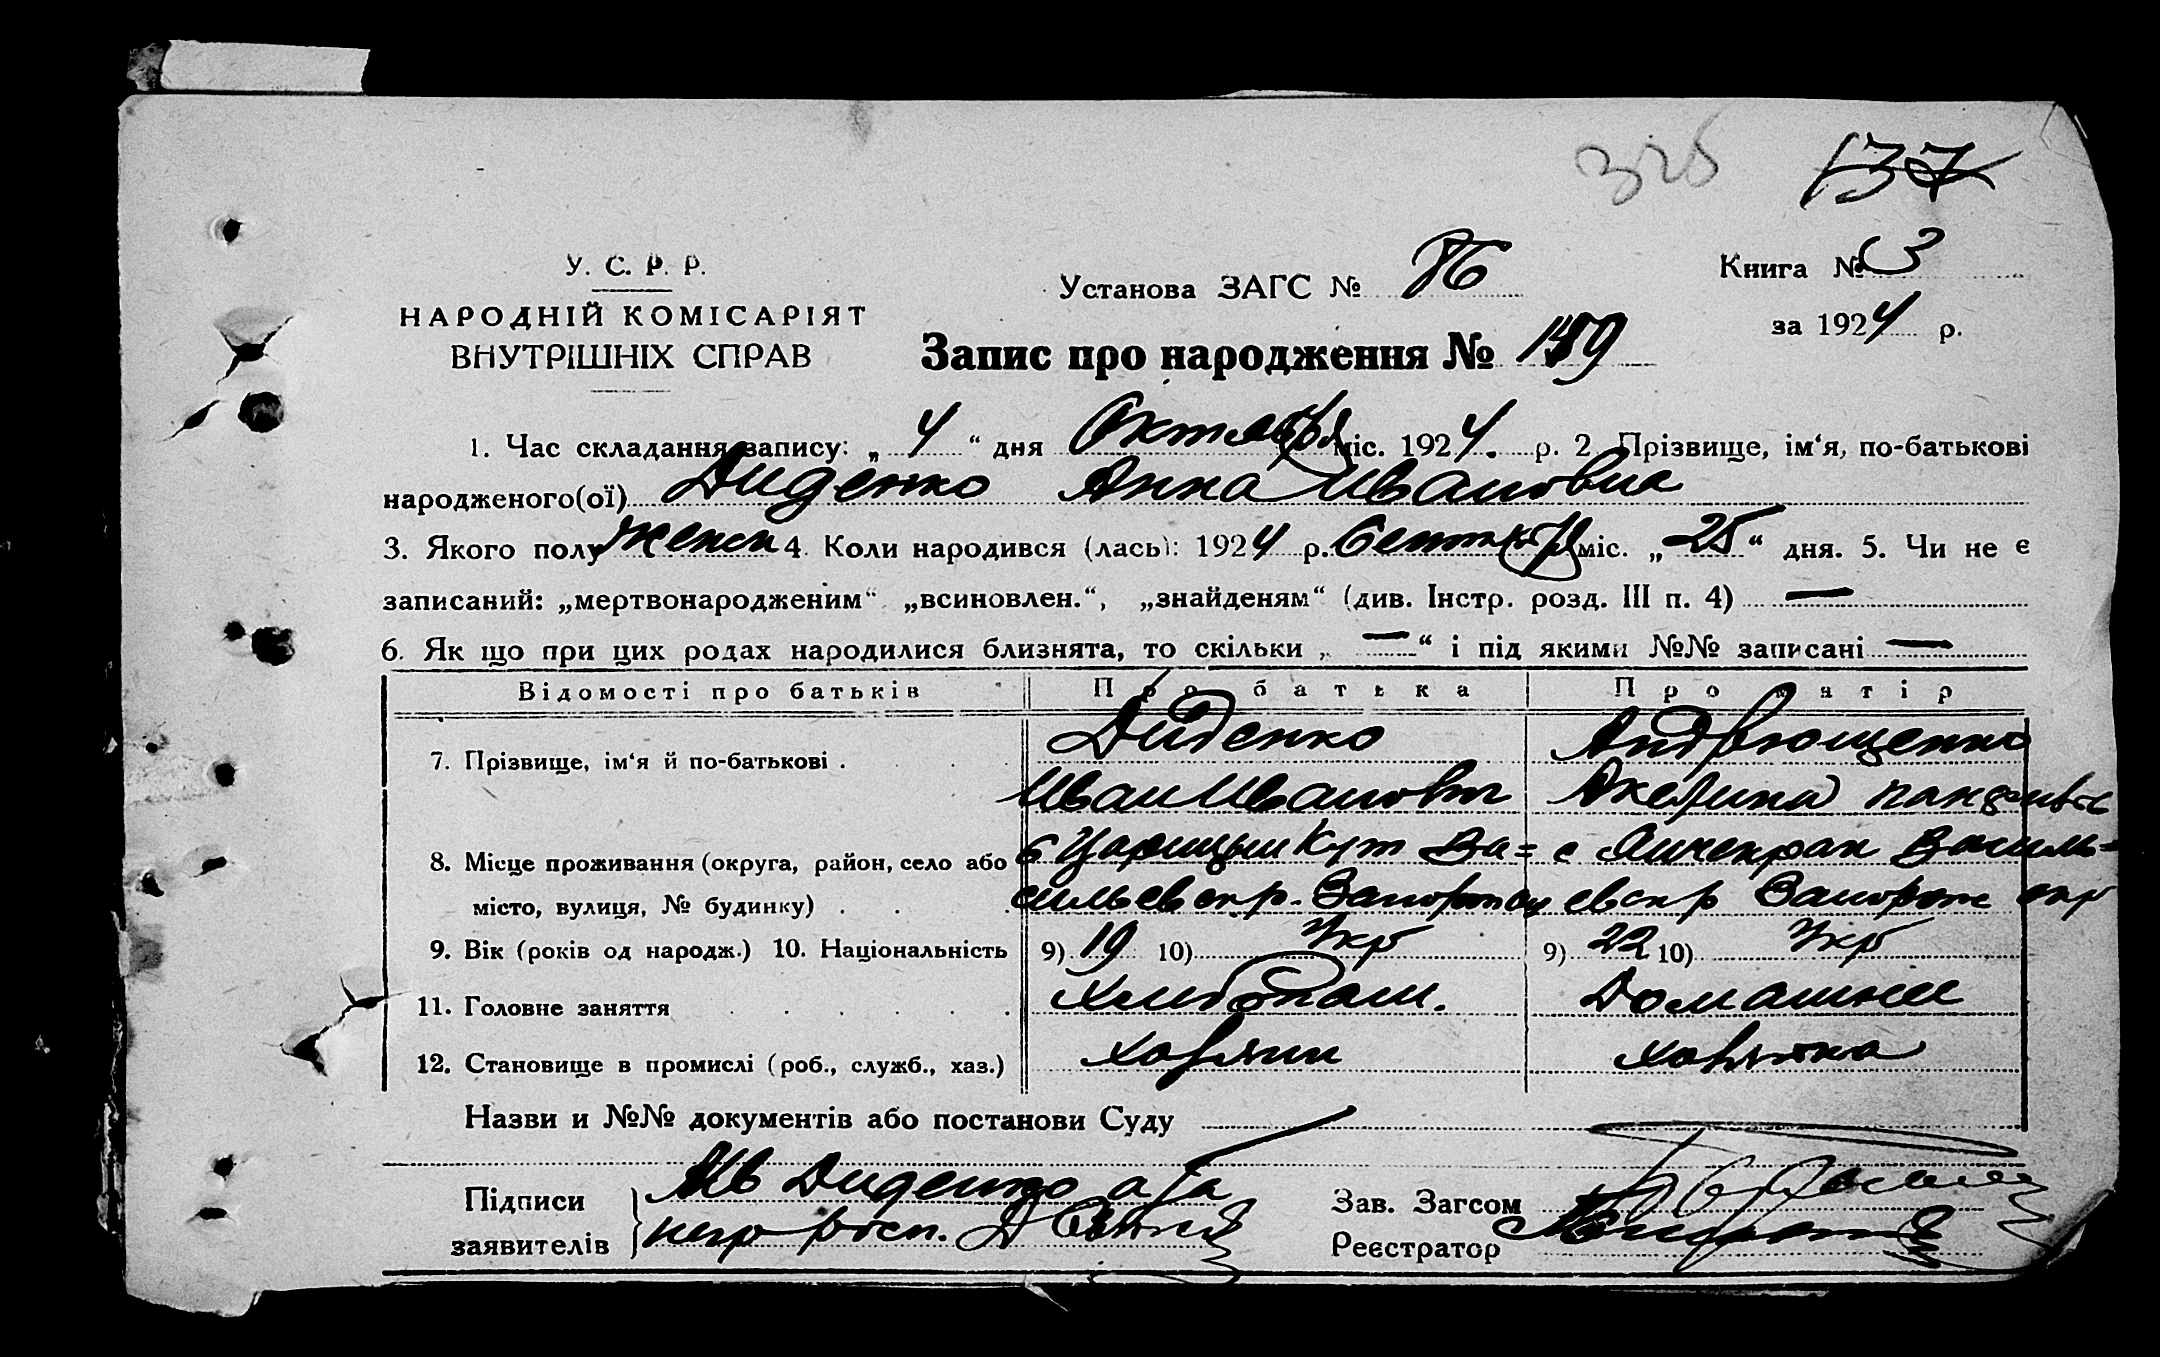 325 137
У. С. Р. Р.
НАРОДНІЙ КОМІСАРІЯТ
ВНУТРІШНІХ СПРАВ
Установа ЗАГС № 86
Книга № 3
за 1924 р.
Запис про народження № 159
1. Час складання запису: „ 4 “ дня Октября міс. 1924. р. 2 Прізвище, ім‘я, по-батькові
народженого(ої) Диденко Анна Ивановна
3. Якого полу женск 4. Коли народився (лась): 1924 р. Сентября міс. „ 25 “ дня. 5. Чи не є
записаний: „мертвонародженим“ „всиновлен.“, „знайденям“ (див. Інстр. розд. III п. 4) —
6. Як що при цих родах народилися близнята, то скільки „ — “ і під якими №№ записані —
Відомості про батьків Про батька Про матір
7. Прізвище, ім‘я й по-батькові . Диденко Андрющенко
Иван Иванович Акелина
8. Місце проживання (округа, район, село або с Царицын Кут Ва= с Янчекрак Василь=
місто, вулиця, № будинку) сильев окр. евск р окр
9. Вік (років од народж.) 10. Національність 9) 19 10) Укр 9) 22 10) Укр
11. Головне заняття Хлебопаш. Домашнее
12. Становище в промислі (роб., служб., хаз.) хозяин хозяйка
Назви и №№ документів або постанови Суду
Підписи Ив Диденко а за
заявителів негр расп.
Зав. Загсом
Реєстратор